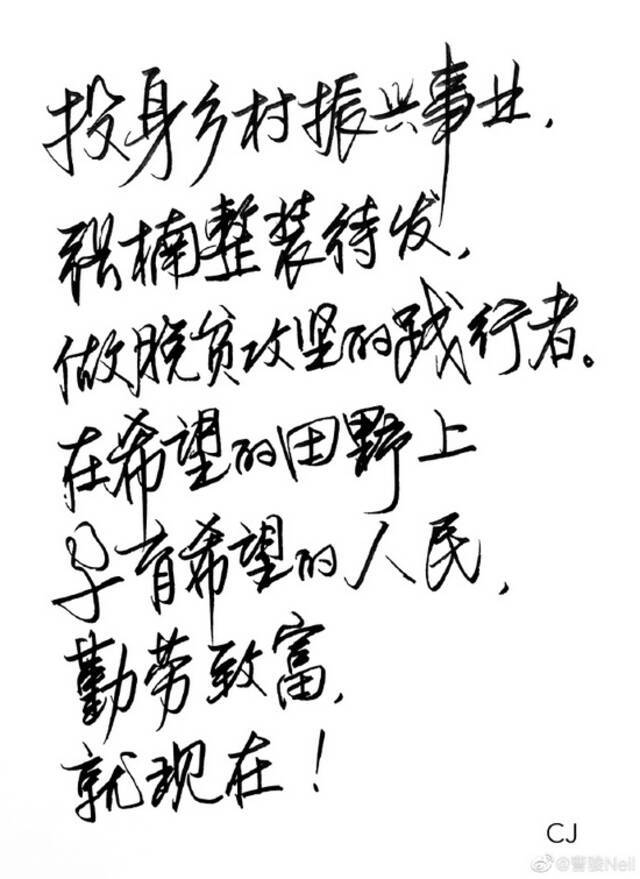 投身乡村振兴事业，
张楠整装待发，
做脱贫攻坚的践行者。
在希望的田野上
孕育希望的人民，
勤劳致富，
就现在！
CJ
@曹骏Neil